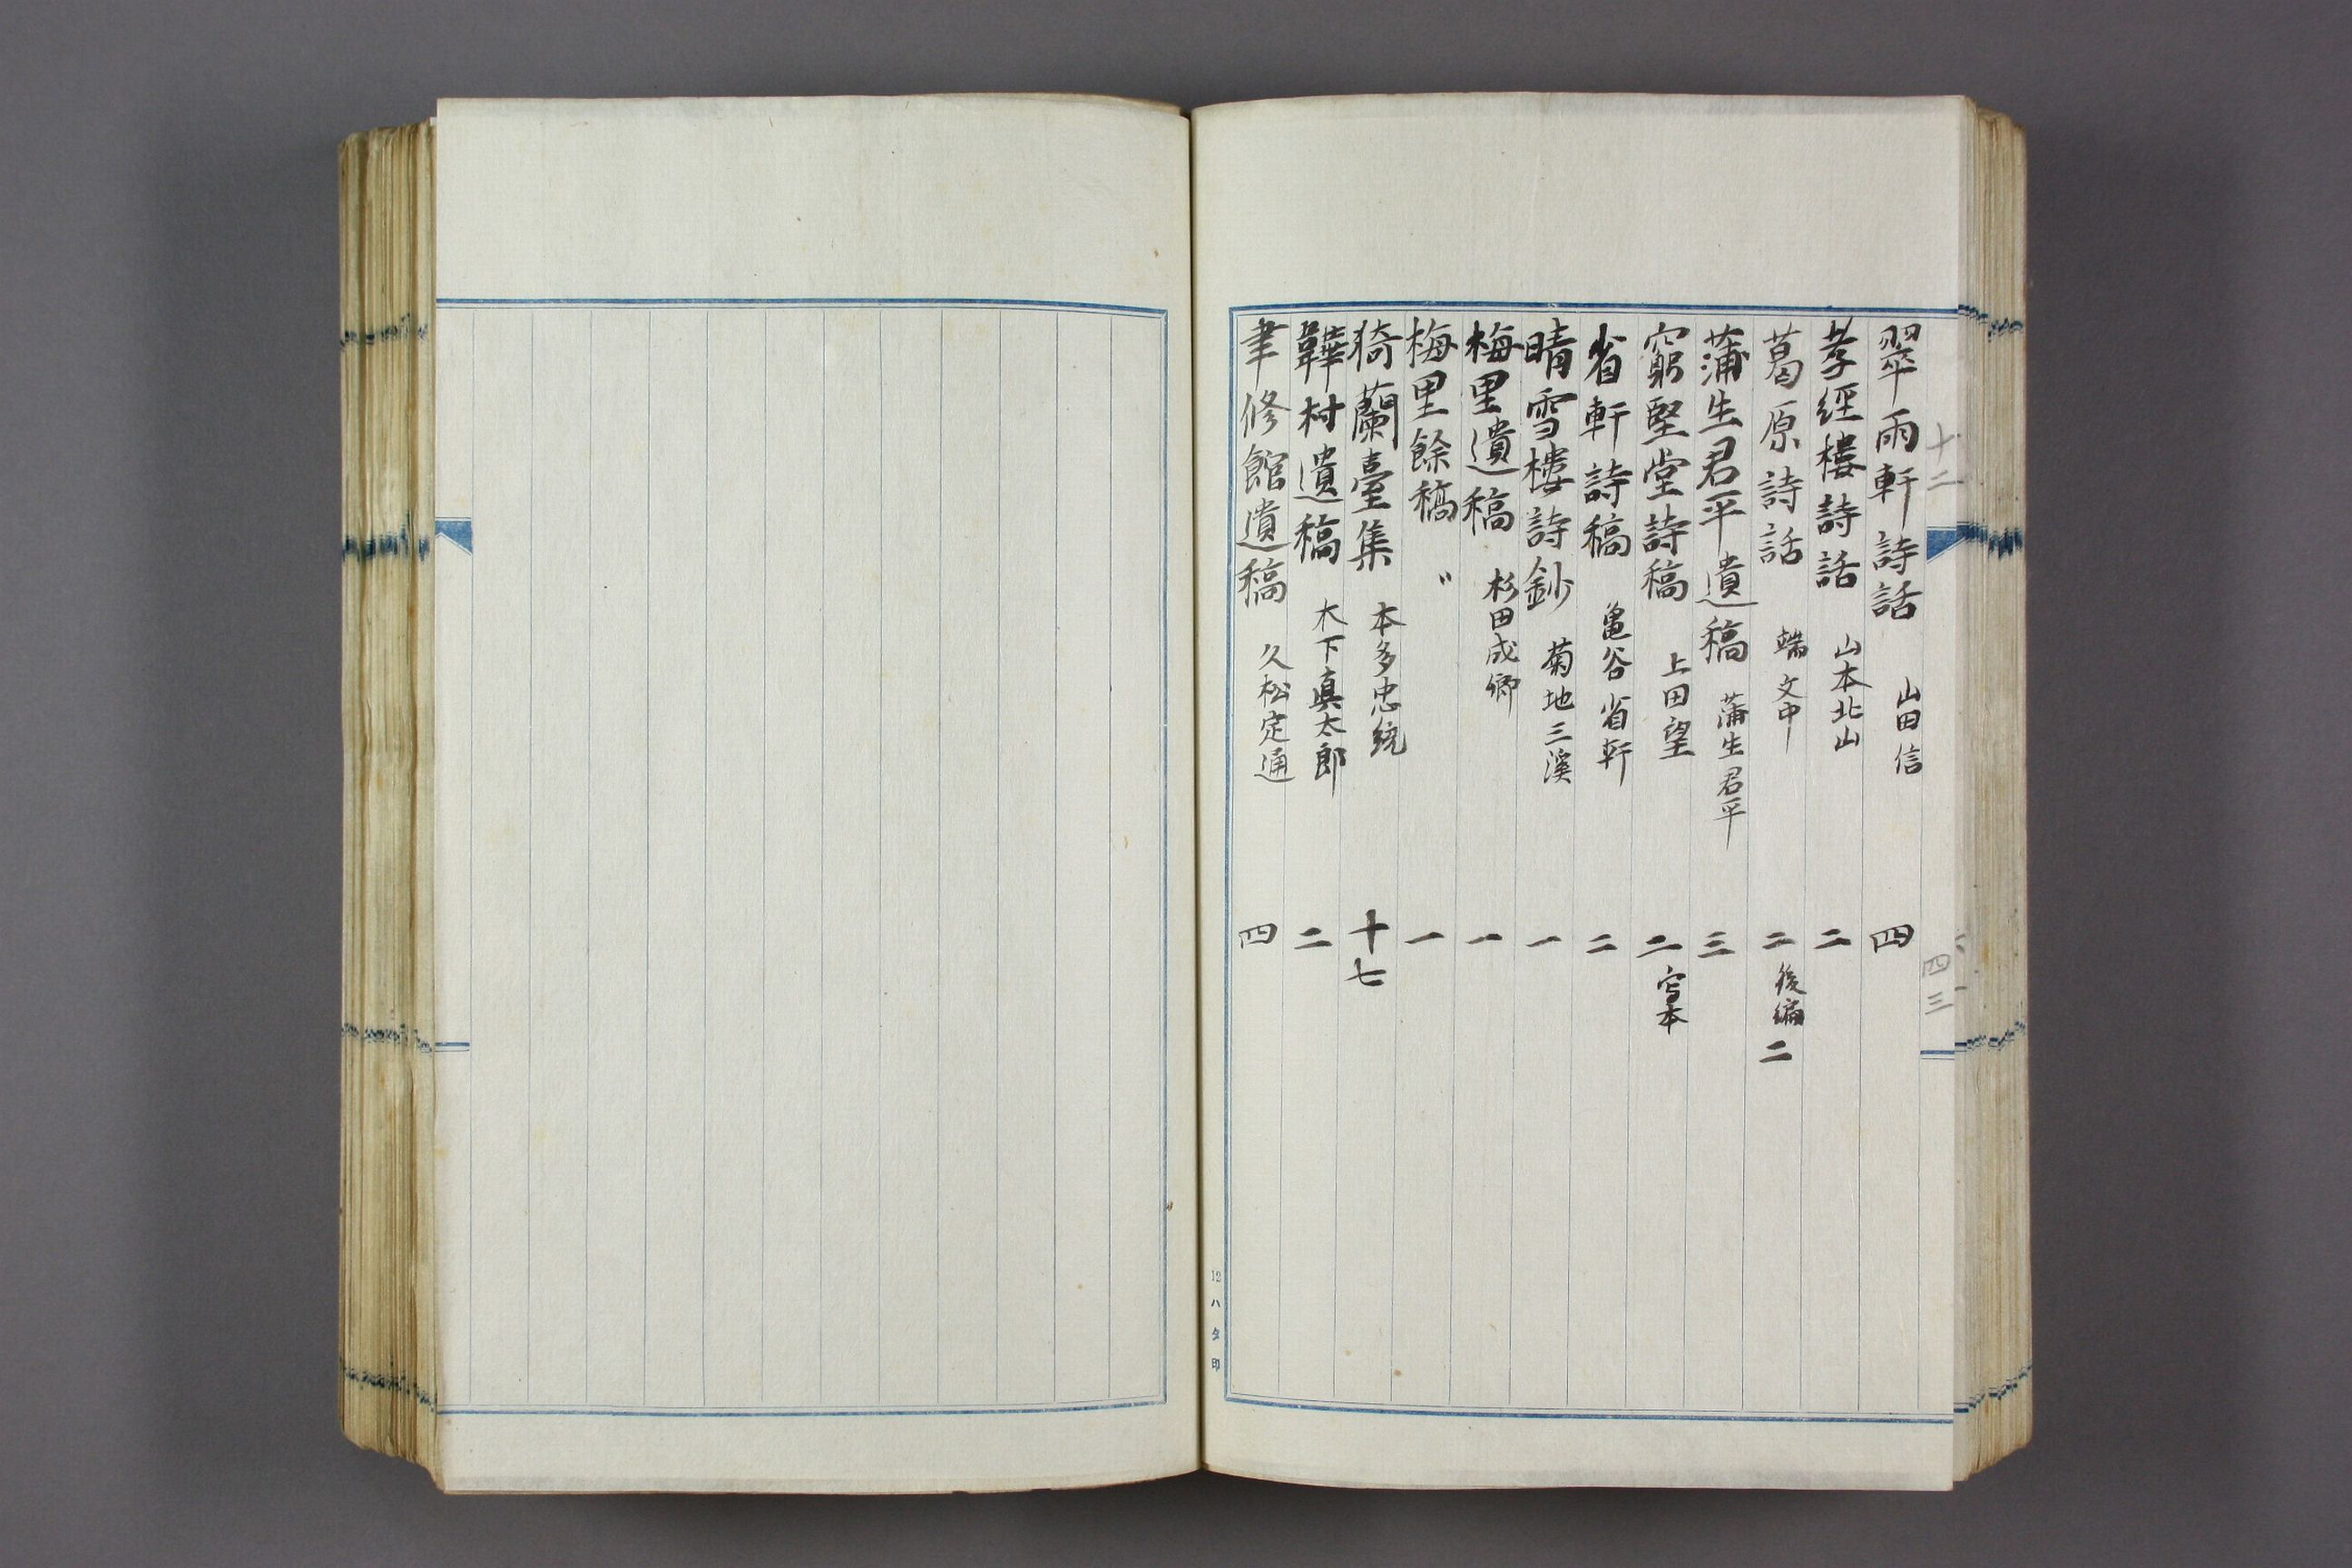 十二
四三
翠雨軒詩話 山田信 四
孝經樓詩話 山本北山 二
葛原詩話 端文中 二 後編 二
蒲生君平遺稿 蒲生君平 三
窮堅堂詩稿 上田望 二 写本
省軒詩稿 亀谷省軒 二
晴雪樓詩鈔 菊地三溪 一
梅里遺稿 杉田成卿 一
梅里餘稿 〃 一
猗蘭臺集 本多忠統 十七
韡村遺稿 木下真太郎 二
聿修館遺稿 久松定通 四
12ハタ印